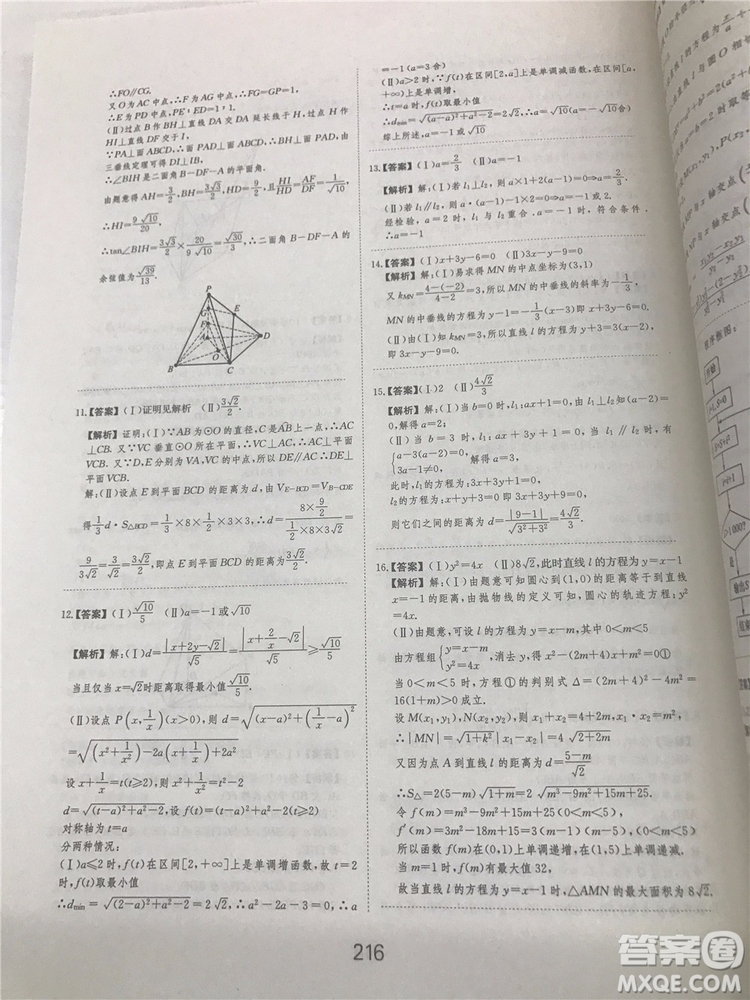 ∴FO∥CG.
又O为AC中点,∴F为AG中点,∴FG=GP=1,
∴E为PD中点
(Ⅱ)过点B作BH⊥直线DA交DA延长线于H,过点H作
HI⊥直线DF交于I,
∵PA⊥面ABCD,∴面PAD⊥面ABCD,∴BH⊥面PAD,由
三垂线定理可得DI⊥IB,
∴∠BIH是二面角B-DF-A的平面角.
由题意得AH=3/2,BH=3√3/2,HD=9/2,且HI/HD=AF/DF=1/√10
∴HI=9√10/20,
∴tan∠BIH=3√3/2×20/9√10=√30/3,∴二面角B-DF-A的
余弦值为√39/13.
P
G
F
E
A
D
O
B
C
11.【答案】(Ⅰ)证明见解析 (Ⅱ)3√2/2.
【解析】证明:(Ⅰ)∵AB为⊙O的直径,C是AB上点,∴AC
⊥CB.又∵VC垂直⊙O所在平面,∴VC⊥AC,∴AC⊥平面
VCB.又∵D,E分别为VA,VC的中点,∴DE∥AC,∴DE⊥平面
VCB.
解:(Ⅱ)设点E到平面BCD的距离为d,由V_{E-BCD}=V_{B-CDE}
得1/3 d·S_{△BCD}=1/3×8×1/2×3×3,∴d=(8×9/2)/(1/2×8×3√2)=
9/3√2=3/√2=3√2/2,即点E到平面BCD的距离为3√2/2.
12.【答案】(Ⅰ)√10/5 (Ⅱ)a=-1或√10
【解析】解:(Ⅰ)d=|x+2y-√2|/√5=|x+2/x-√2|/√5≥√10/5
当且仅当x=√2时距离取得最小值√10/5.
(Ⅱ)设点P(x,1/x)(x>0),则d=√((x-a)²+(1/x-a)²)
=√((x²+1/x²)-2a(x+1/x)+2a²)
设x+1/x=t(t≥2),则x²+1/x²=t²-2
d=√((t-a)²+a²-2),设f(t)=(t-a)²+a²-2(t≥2)
对称轴为t=a
分两种情况:
(Ⅰ)a≤2时,f(t)在区间[2,+∞]上是单调增函数,故t=2
时,f(t)取最小值
∴d_min=√((2-a)²+a²-2)=2√2,∴a²-2a-3=0,∴a
=-1(a=3舍)
(Ⅱ)a>2时,∵f(t)在区间[2,a]上是单调减函数,在[a,
+∞)上是单调增,
∴t=a时,f(t)取最小值
∴d_min=√((a-a)²+a²-2)=2√2,∴a=√10(a=-√10舍)
综上所述,a=-1或√10
13.【答案】(Ⅰ)a=2/3 (Ⅱ)a=-1
【解析】解:(Ⅰ)若l₁⊥l₂,则a×1+2×(a-1)=0⇒a=2/3.
(Ⅱ)若l₁∥l₂,则a·(a-1)-2×1=0⇒a=-1或2.
经检验,a=2时,l₁与l₂重合.a=-1时,符合条件.
∴a=-1
14.【答案】(Ⅰ)x+3y-6=0 (Ⅱ)3x-y-9=0
【解析】解:(Ⅰ)易求得MN的中点坐标为(3,1)
又k_{MN}=4-(-2)/4-2=3,所以MN的中垂线的斜率为-1/3,
MN的中垂线的方程为y-1=-1/3(x-3)即x+3y-6=0
(Ⅱ)由(Ⅰ)知k_{MN}=3,所以直线l的方程为y+3=3(x-2)
即3x-y-9=0
15.【答案】(Ⅰ)2 (Ⅱ)4√2/3
【解析】解:(Ⅰ)当b=0时,l₁:ax+1=0,由l₁⊥l₂知a-2
=0,解得a=2;
(Ⅱ)当b=3时,l₁:ax+3y+1=0,由l₁∥l₂得
{a-3(a-2)=0
3a-1≠0,解得a=3;
此时,l₁的方程为:3x+3y+1=0,l₂的方程为:x+y+3=
0,即3x+3y+9=0.
则它们之间的距离为d=|9-1|/√(3²+3²)=4√2/3.
16.【答案】(Ⅰ)y²=4x (Ⅱ)8√2,此时直线l的方程为y=x-1
【解析】解:(Ⅰ)由题意可知圆心到(1,0)的距离等于到直线
x=-1的距离,由抛物线的定义可知,圆心的轨迹方程:y²
=4x.
(Ⅱ)由题意,可设l的方程为y=x-m,其中0<m<5
由方程组{y=x-m
y²=4x,消去y,得x²-(2m+4)x+m²=0 ①
当0<m<5时,方程①的判别式Δ=(2m+4)²-4m²=
16(1+m)>0成立.
设M(x₁,y₁),N(x₂,y₂),则x₁+x₂=4+2m,x₁·x₂=m²,
∴|MN|=√(1+k²)|x₁-x₂|=4√(2+2m)
又因为点A到直线l的距离为d=5-m/√2
∴S_△=2(5-m)√(1+m)=2√(m³-9m²+15m+25).
令f(m)=m³-9m²+15m+25,(0<m<5)
f′(m)=3m²-18m+15=3(m-1)(m-5),(0<m<5)
所以函数f(m)在(0,1)上单调递增,在(1,5)上单调递减.
当m=1时,f(m)有最大值32,
故当直线l的方程为y=x-1时,△AMN的最大面积为8√2.
216
答案圈
MXQE.COM